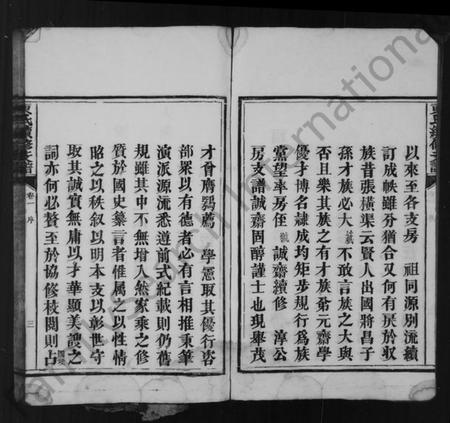 以來至各支房　祖同源別流續
訂成帙雖分猶合又何有戾於収
族昔張橫渠云賢人出國將昌子
孫才族必大　不敢言族之大與
否且樂其族之有才族弟元齋學
優才博名隸成均矩步規行爲族
黨望率房侄　誠齋續修　淳公
房支譜誠齋固醇謹士也現舉茂
才曾膺鶚薦　學憲取其優行咨
部眾以有德者必有言相推秉筆
演派源流悉遵前式紀載則仍舊
規雖其中不無增入然家乘之修
質於國史纂言者惟屬之以性情
昭之以秩叙以明本支以彰世守
取其誠實無庸以才華顯美謏之
詞亦何必贅至於協修校閱則占
氏續修支譜
卷一　序
三